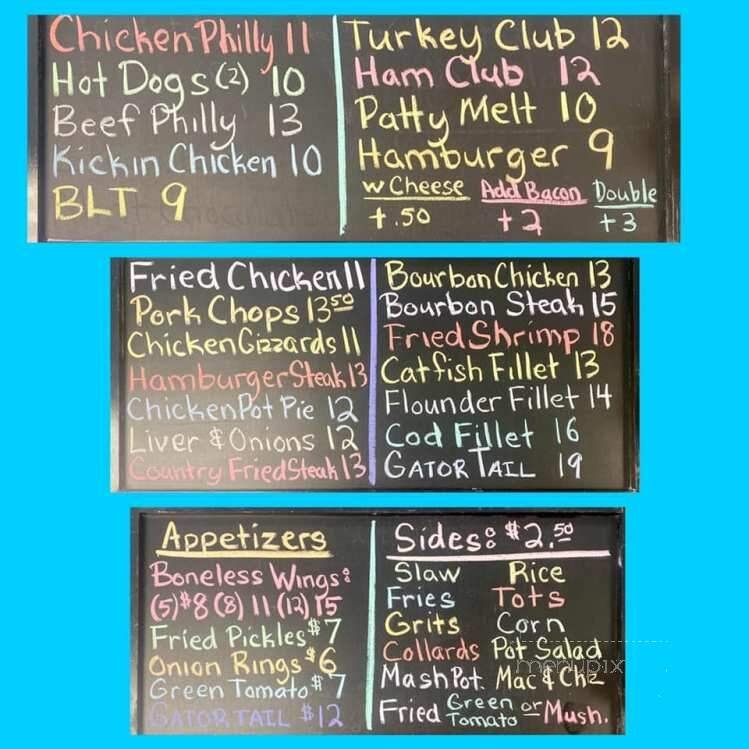 Chicken Philly 11
Hot Dogs (2) 10
Beef Philly 13
Kickin Chicken 10
BLT 9
Turkey Club 12
Ham Club 12
Patty Melt 10
Hamburger 9
w Cheese Add Bacon Double
+.50 +2 +3
Fried Chicken 11
Pork Chops 13 50
Chicken Gizzards 11
Hamburger Steak 13
Chicken Pot Pie 12
Liver & Onions 12
Country Fried Steak 13
Bourbon Chicken 13
Bourbon Steak 15
Fried Shrimp 18
Catfish Fillet 13
Flounder Fillet 14
Cod Fillet 16
GATOR TAIL 19
Appetizers
Boneless Wings:
(5) $8 (8) 11 (12) 15
Fried Pickles $7
Onion Rings $6
Green Tomato $7
GATOR TAIL $12
Sides: $2.50
Slaw Rice
Fries Tots
Grits Corn
Collards Pot Salad
Mash Pot. Mac & Chz
Fried Green Tomato or Mush.
menupix